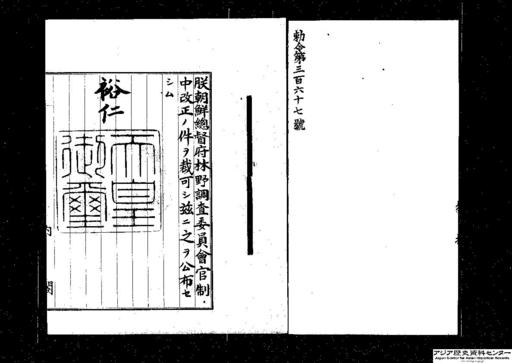 勅令第三百六十七號
朕朝鮮總督府林野調査委員會官制
中改正ノ件ヲ裁可シ茲ニ之ヲ公布セ
シム
裕仁
天皇
御璽
内閣
アジア歴史資料センター
Japan Center for Asian Historical Records